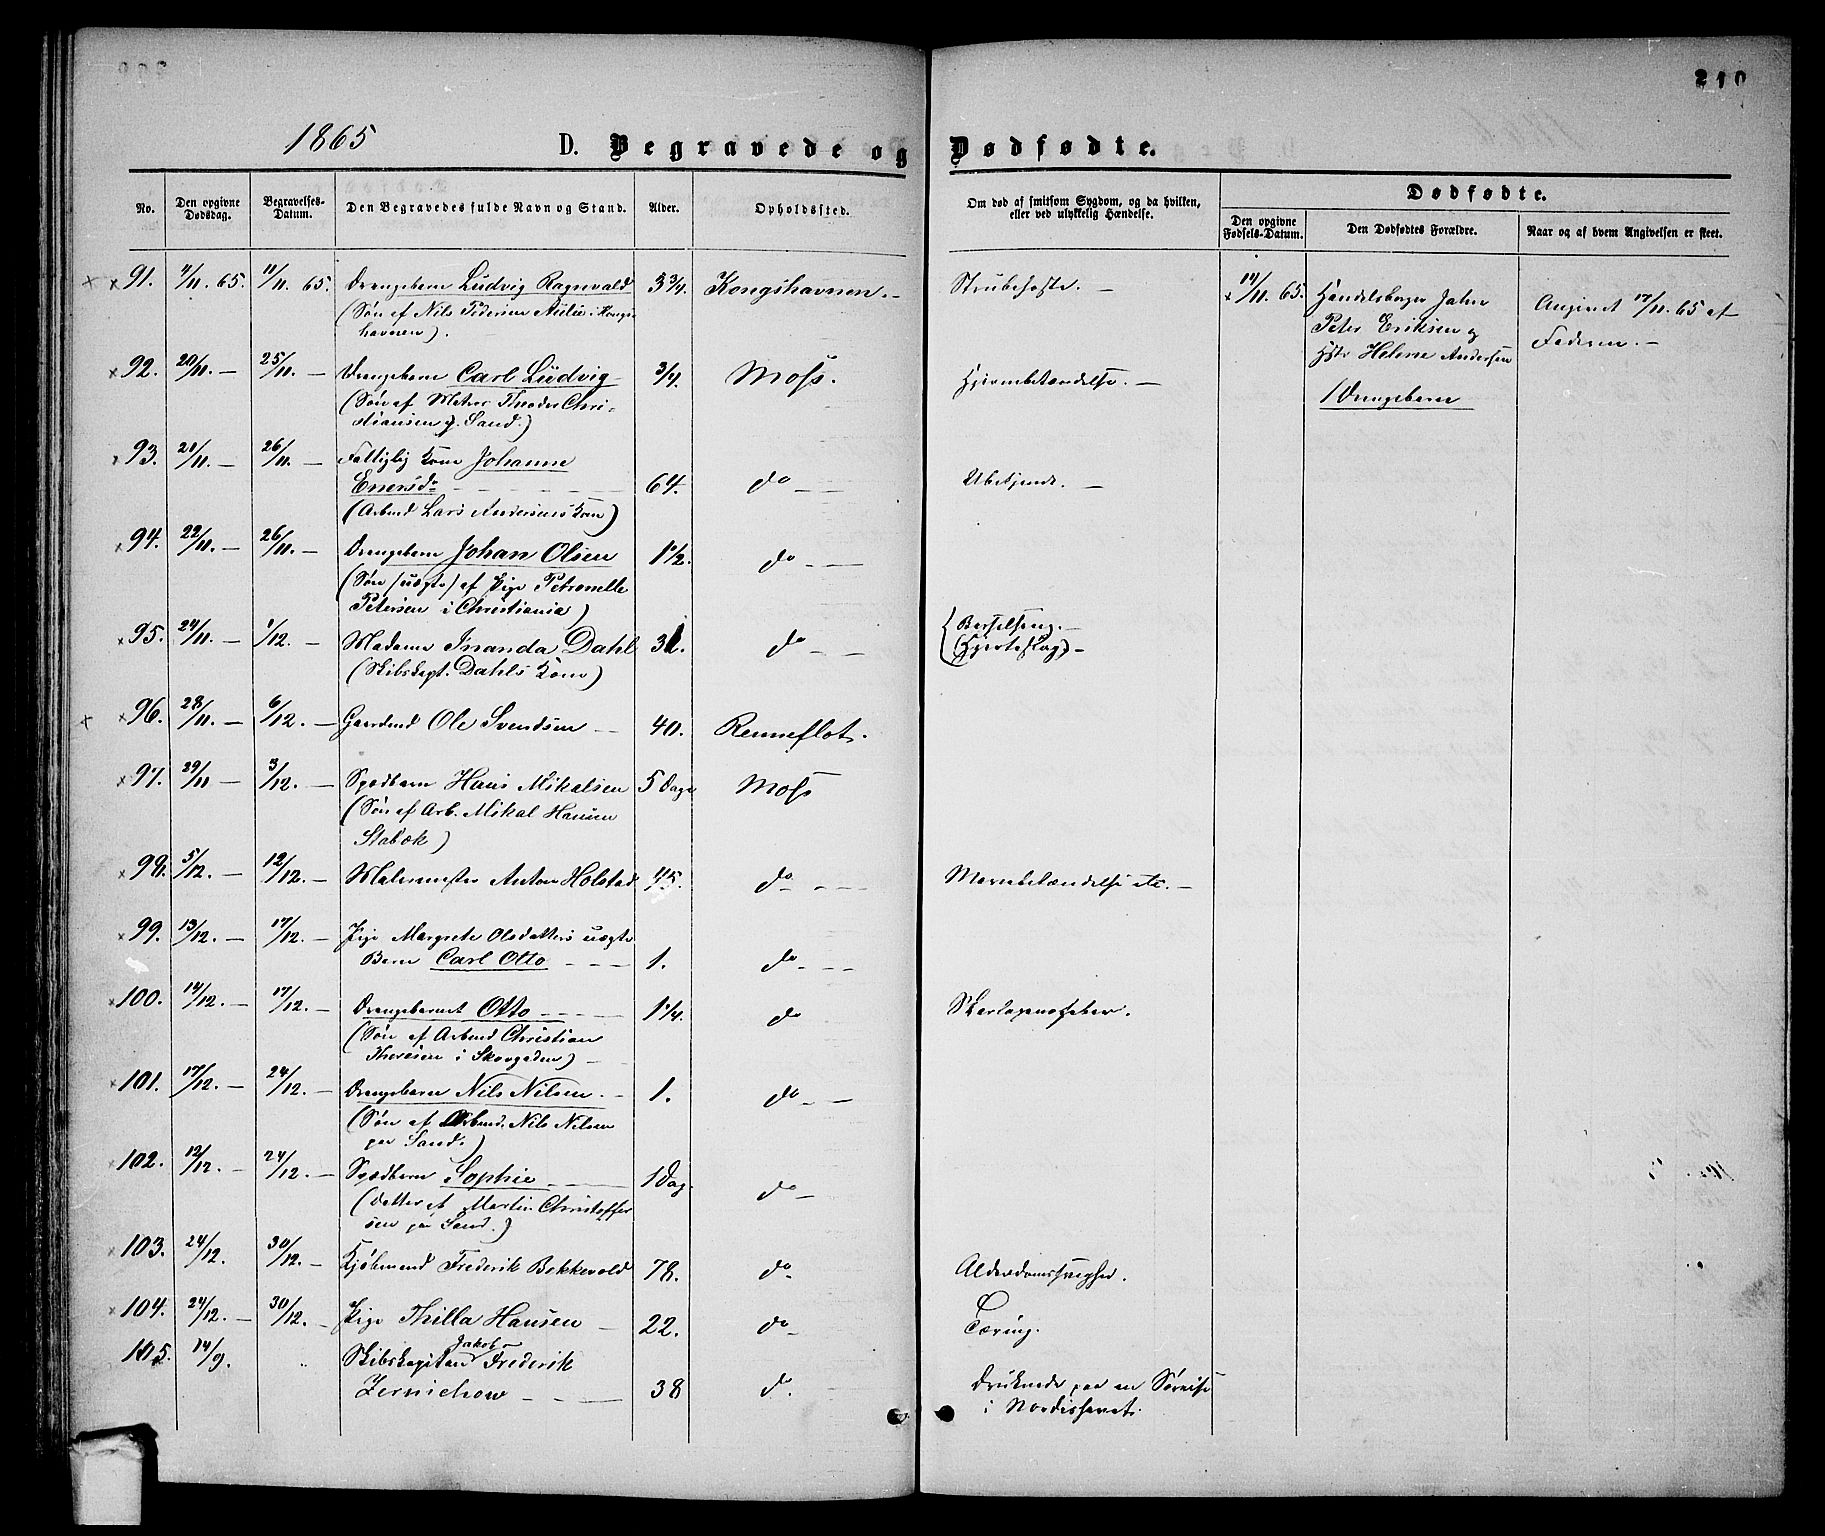 210
1865 D. Begravede og Dødfødte.
No. Den opgivne Dødsdag. Begravelses-Datum. Den Begravedes fulde Navn og Stand. Alder. Opholdssted. Om død af smitsom Sygdom, og da hvilken, eller ved ulykkelig Hændelse. Dødfødte.
Den opgivne Fødsels-Datum. Den Dødfødtes Forældre. Naar og af hvem Angivelsen er skeet.
91. 4/11. 65. 11/11. 65. Drengebarn Ludvig Ragnvald 3 3/4. Kongshavnen. – Strubehoste. – 14/11. 65. Handelsborger John
(Søn af Nils Pedersen i Kongs
havnen).
Peter Eriksen og
Hstr Helene Andersen
1 Drengebarn
Angivet 17/11. 65 af
Faderen. –
92. 20/11. – 25/11. – Drengebarn Carl Ludvig 3/4. Moss. Hjernebetændelse. –
(Søn af Matros Theodor Chri-
stiansen p. Sand.)
93. 21/11. – 26/11. – Fattiglig Kone Johanne
Enersdr 64. do – – Ubekjendt. –
(Arbmd Lars Andersens Kone)
94. 22/11. – 26/11. – Drengebarn Johan Olsen 1 1/2. do – –
(Søn /uægte/ af Pige Petronelle
Petersen i Christiania)
95. 24/11. – 1/12. – Madame Inanda Dahl 31. do – – (Barselseng. –
(Skibskapt. Dahls Kone) (Hjerteslag) –
96. 28/11. – 6/12. – Gaardmd Ole Svendsen – 40. Renneflot.
97. 29/11 – 3/12. – Spædbarn Hans Mikalsen 5 Dage Moss
(Søn af Arb. Mikal Hansen
Stabæk)
98. 5/12. – 12/12. – Malermester Anton Holstad 45. do – – – Mavebetændelse etc. –
99. 13/12. – 17/12. – Pige Margrete Olsdatters uægte
Barn Carl Otto 1. do – – –
100. 14/12. – 17/12. – Drengebarnet Otto 1 1/4. do Skarlagensfeber.
(Søn af Arbmd Christian
Thoresen i Skovgaden) –
101. 17/12. – 24/12. – Drengebarn Nils Nilsen. – 1. do – –
(Søn af Arbmd. Nils Nilsen
paa Sand.)
102. 12/12. – 24/12. – Spædbarn Sophie 1 Dag. do –
(Datter af Martin Christoffer
sen paa Sand.)
103. 24/12. 30/12. – Kjøbmand Frederik Bekkevold 78. do – Alderdomssvaghed.
104. 24/12. – 30/12. – Pige Thilla Hansen – 22. do – Tæring.
105. 14/9. „ Skibskapitan Jakob Frederik
Zernichow 38 do. Druknede paa en Søreise
i Nordishavet.